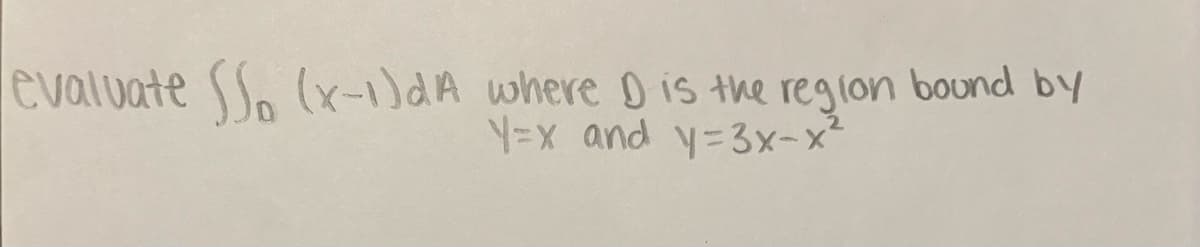 evaluate ∬_D (x-1)dA where D is the region bound by
y=x and y=3x-x²